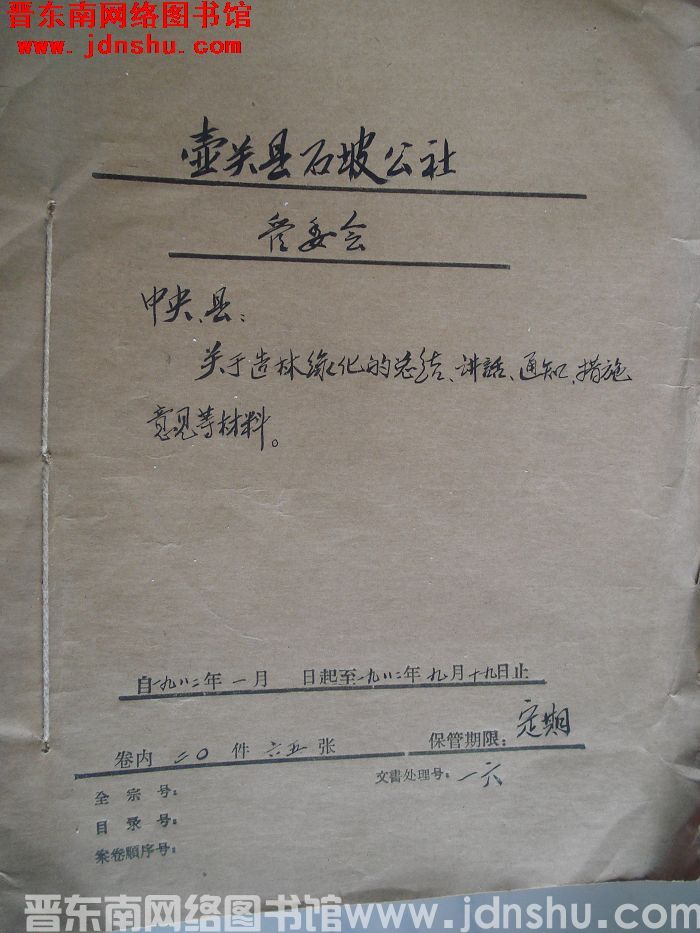 晋东南网络图书馆
www.jdnshu.com
壶关县石坡公社
管委会
中央、县：
关于造林绿化的总结、讲話、通知、措施
意见等材料。
自一九八二年一月 日起至一九八二年九月十九日止
卷内二〇件六五张 保管期限：定期
全宗号： 文書处理号：一六
目录号：
案卷順序号：
晋东南网络图书馆www.jdnshu.com